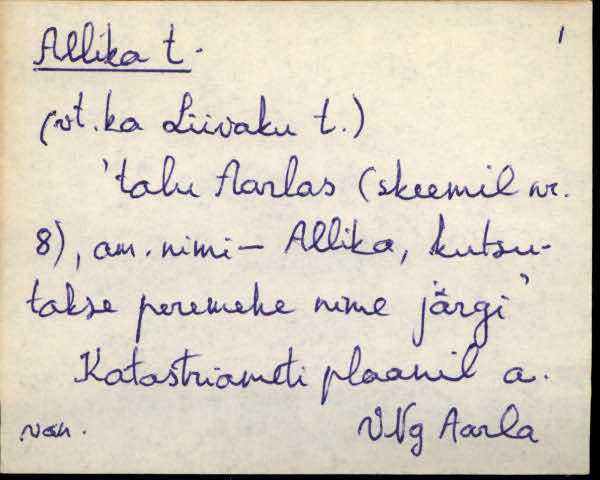 Allika t.
1
(vt. ka Liivaku t.)
'talu Aarlas (skeemil nr.
8), am. nimi – Allika, kutsu-
takse peremehe nime järgi'
Katastriameti plaanil a.
VNg Aarla